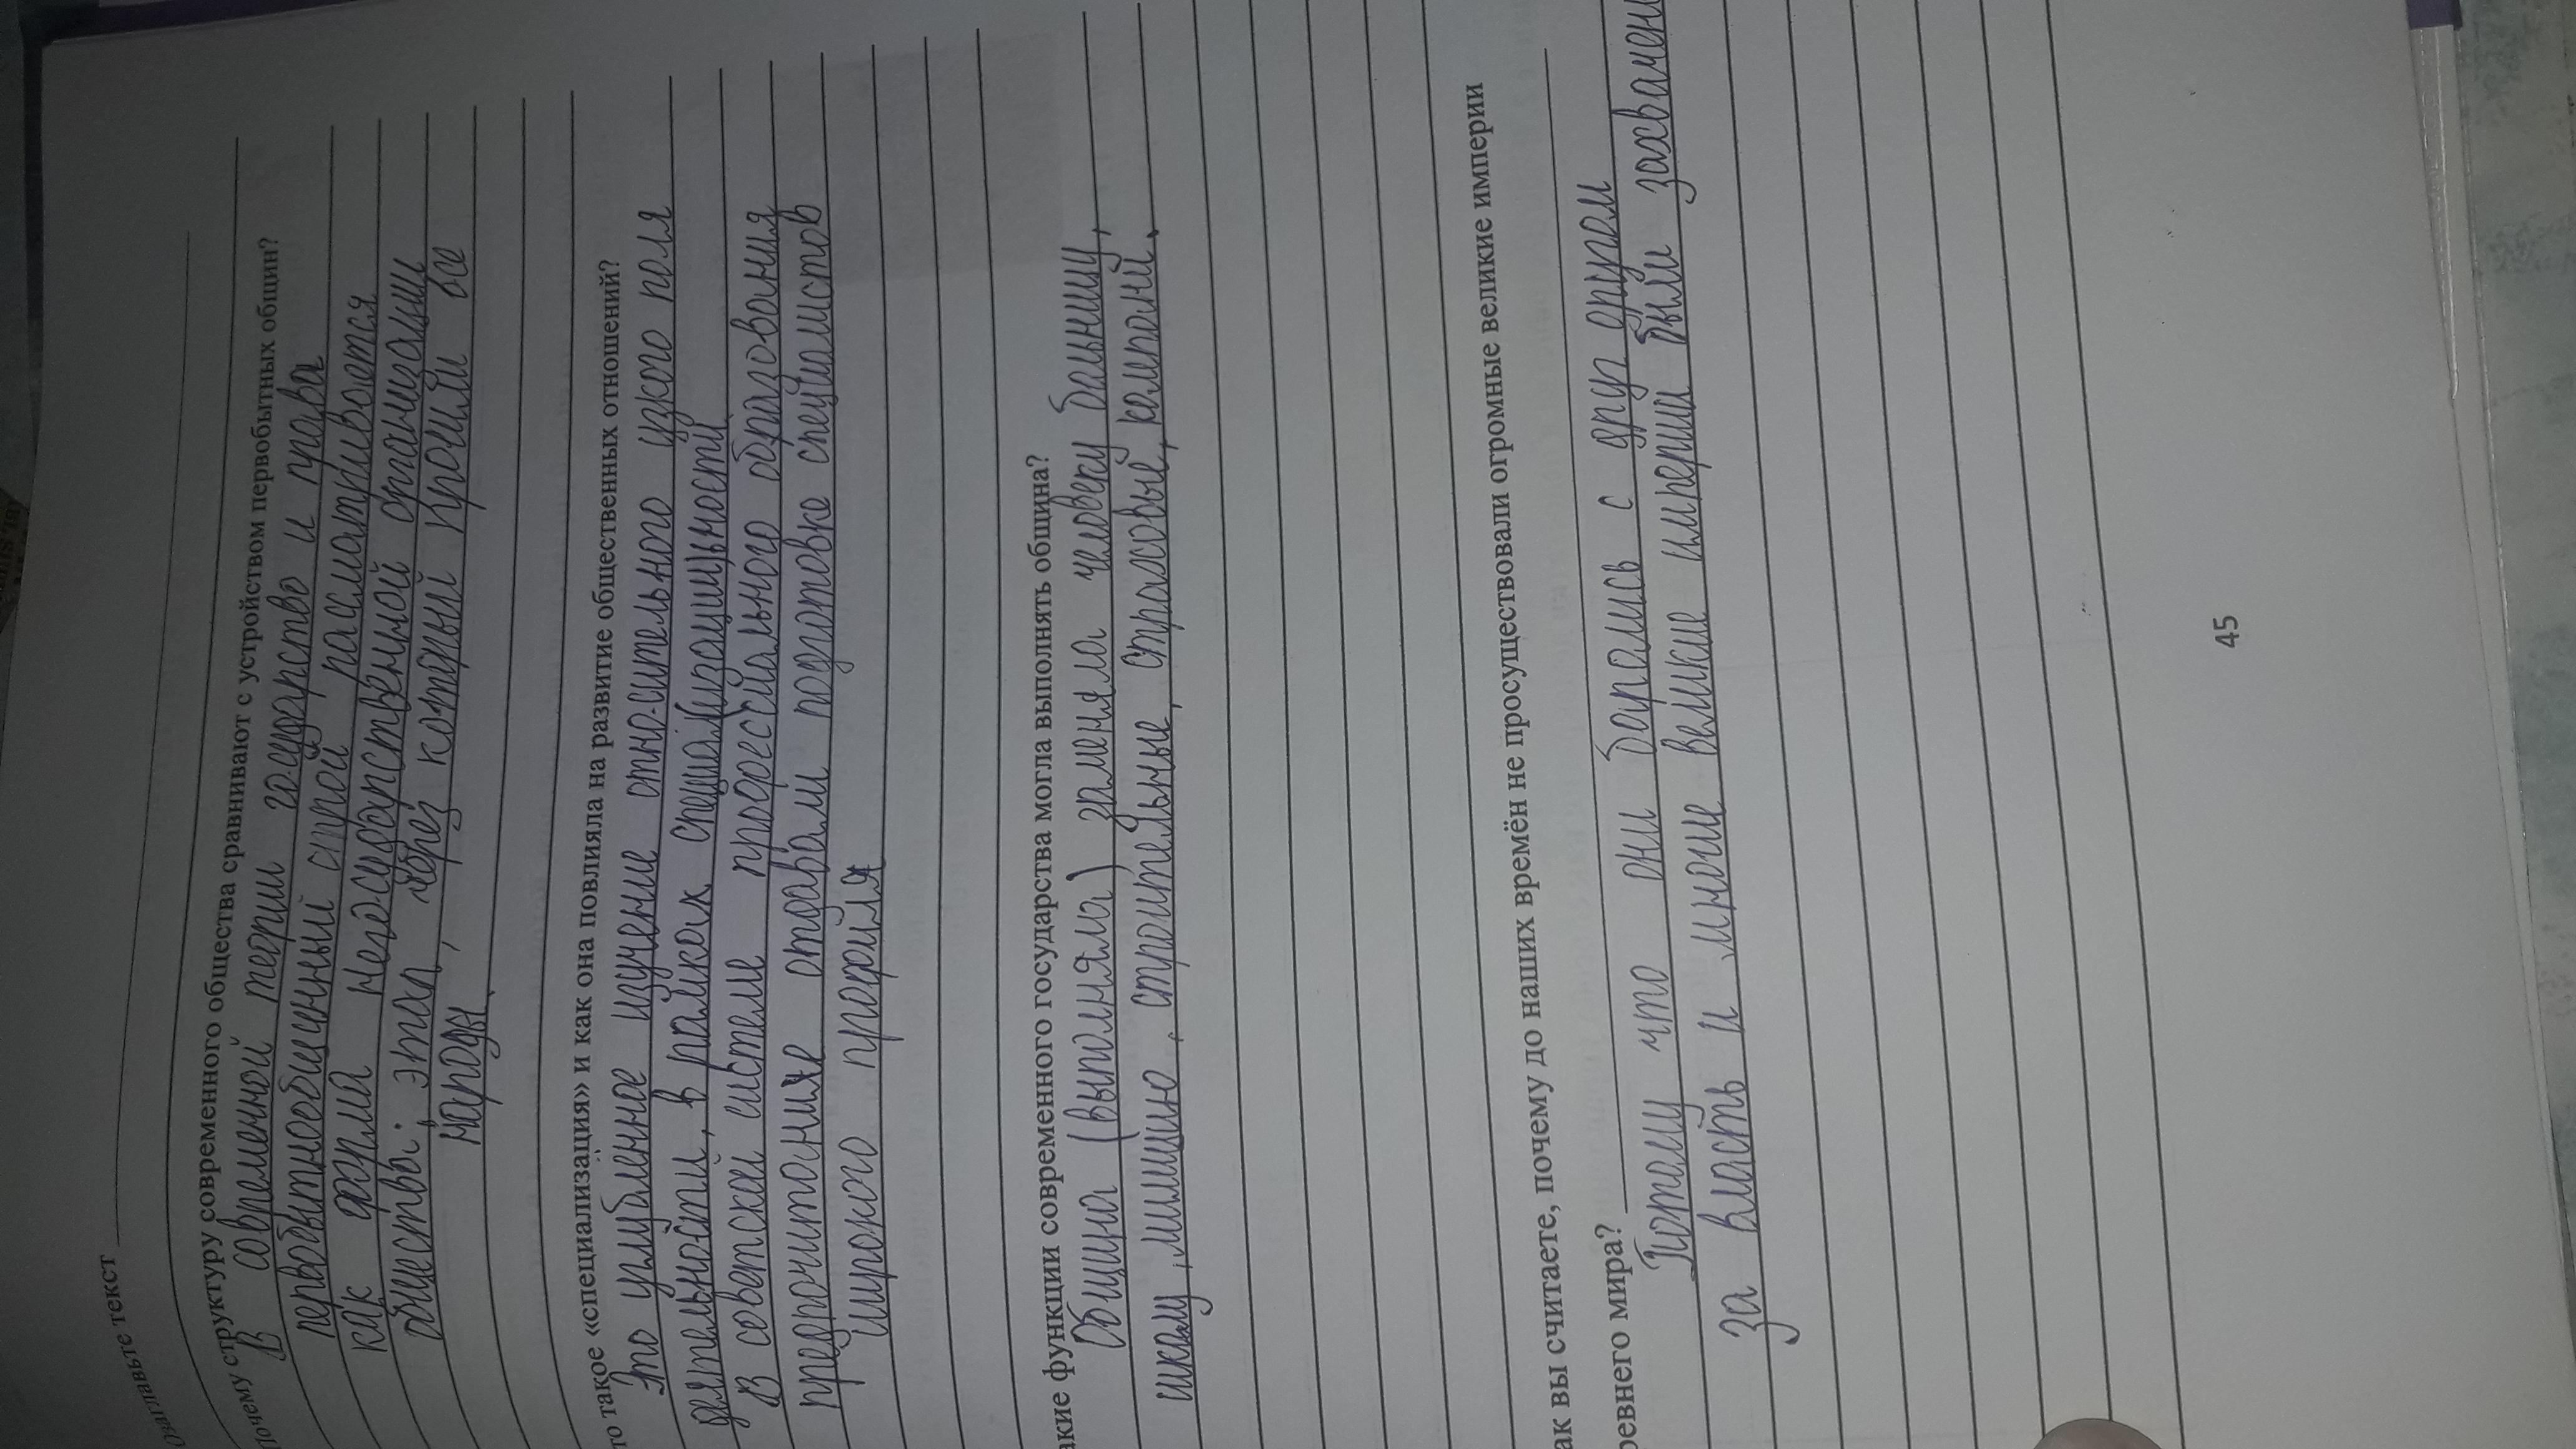 Озаглавьте текст
Почему структуру современного общества сравнивают с устройством первобытных общин?
В современной теории государство и права
первобытнообщинный строй рассматриваются
как форма негосударственной организации
общества: этап, через который прошли все
народы.
то такое «специализация» и как она повлияла на развитие общественных отношений?
Это углубленное изучение относительного узкого поля
деятельности, в рамках специализациьности
В советской системе профессиального образования
предпочитание отдавали подготовке специалистов
широкого профиля
акие функции современного государства могла выполнять община?
Община (выполняла) заменяла человеку больницу,
школу, милицию, строительные, страховые, компани.
ак вы считаете, почему до наших времён не просуществовали огромные великие империи
ревнего мира?
Потому что они борались с друг другом
за власть и многие великие империи были захвачен
45